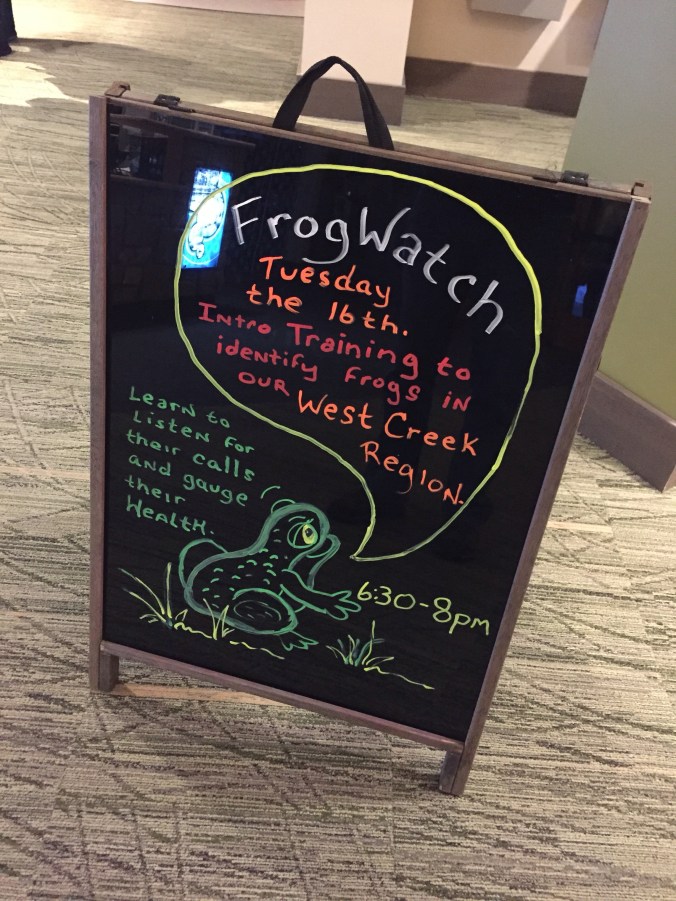 FrogWatch
Tuesday
the 16th.
Intro Training to
identify frogs in
our West Creek
Region.
Learn to
Listen for
their calls
and gauge
their
Health.
6:30-8pm